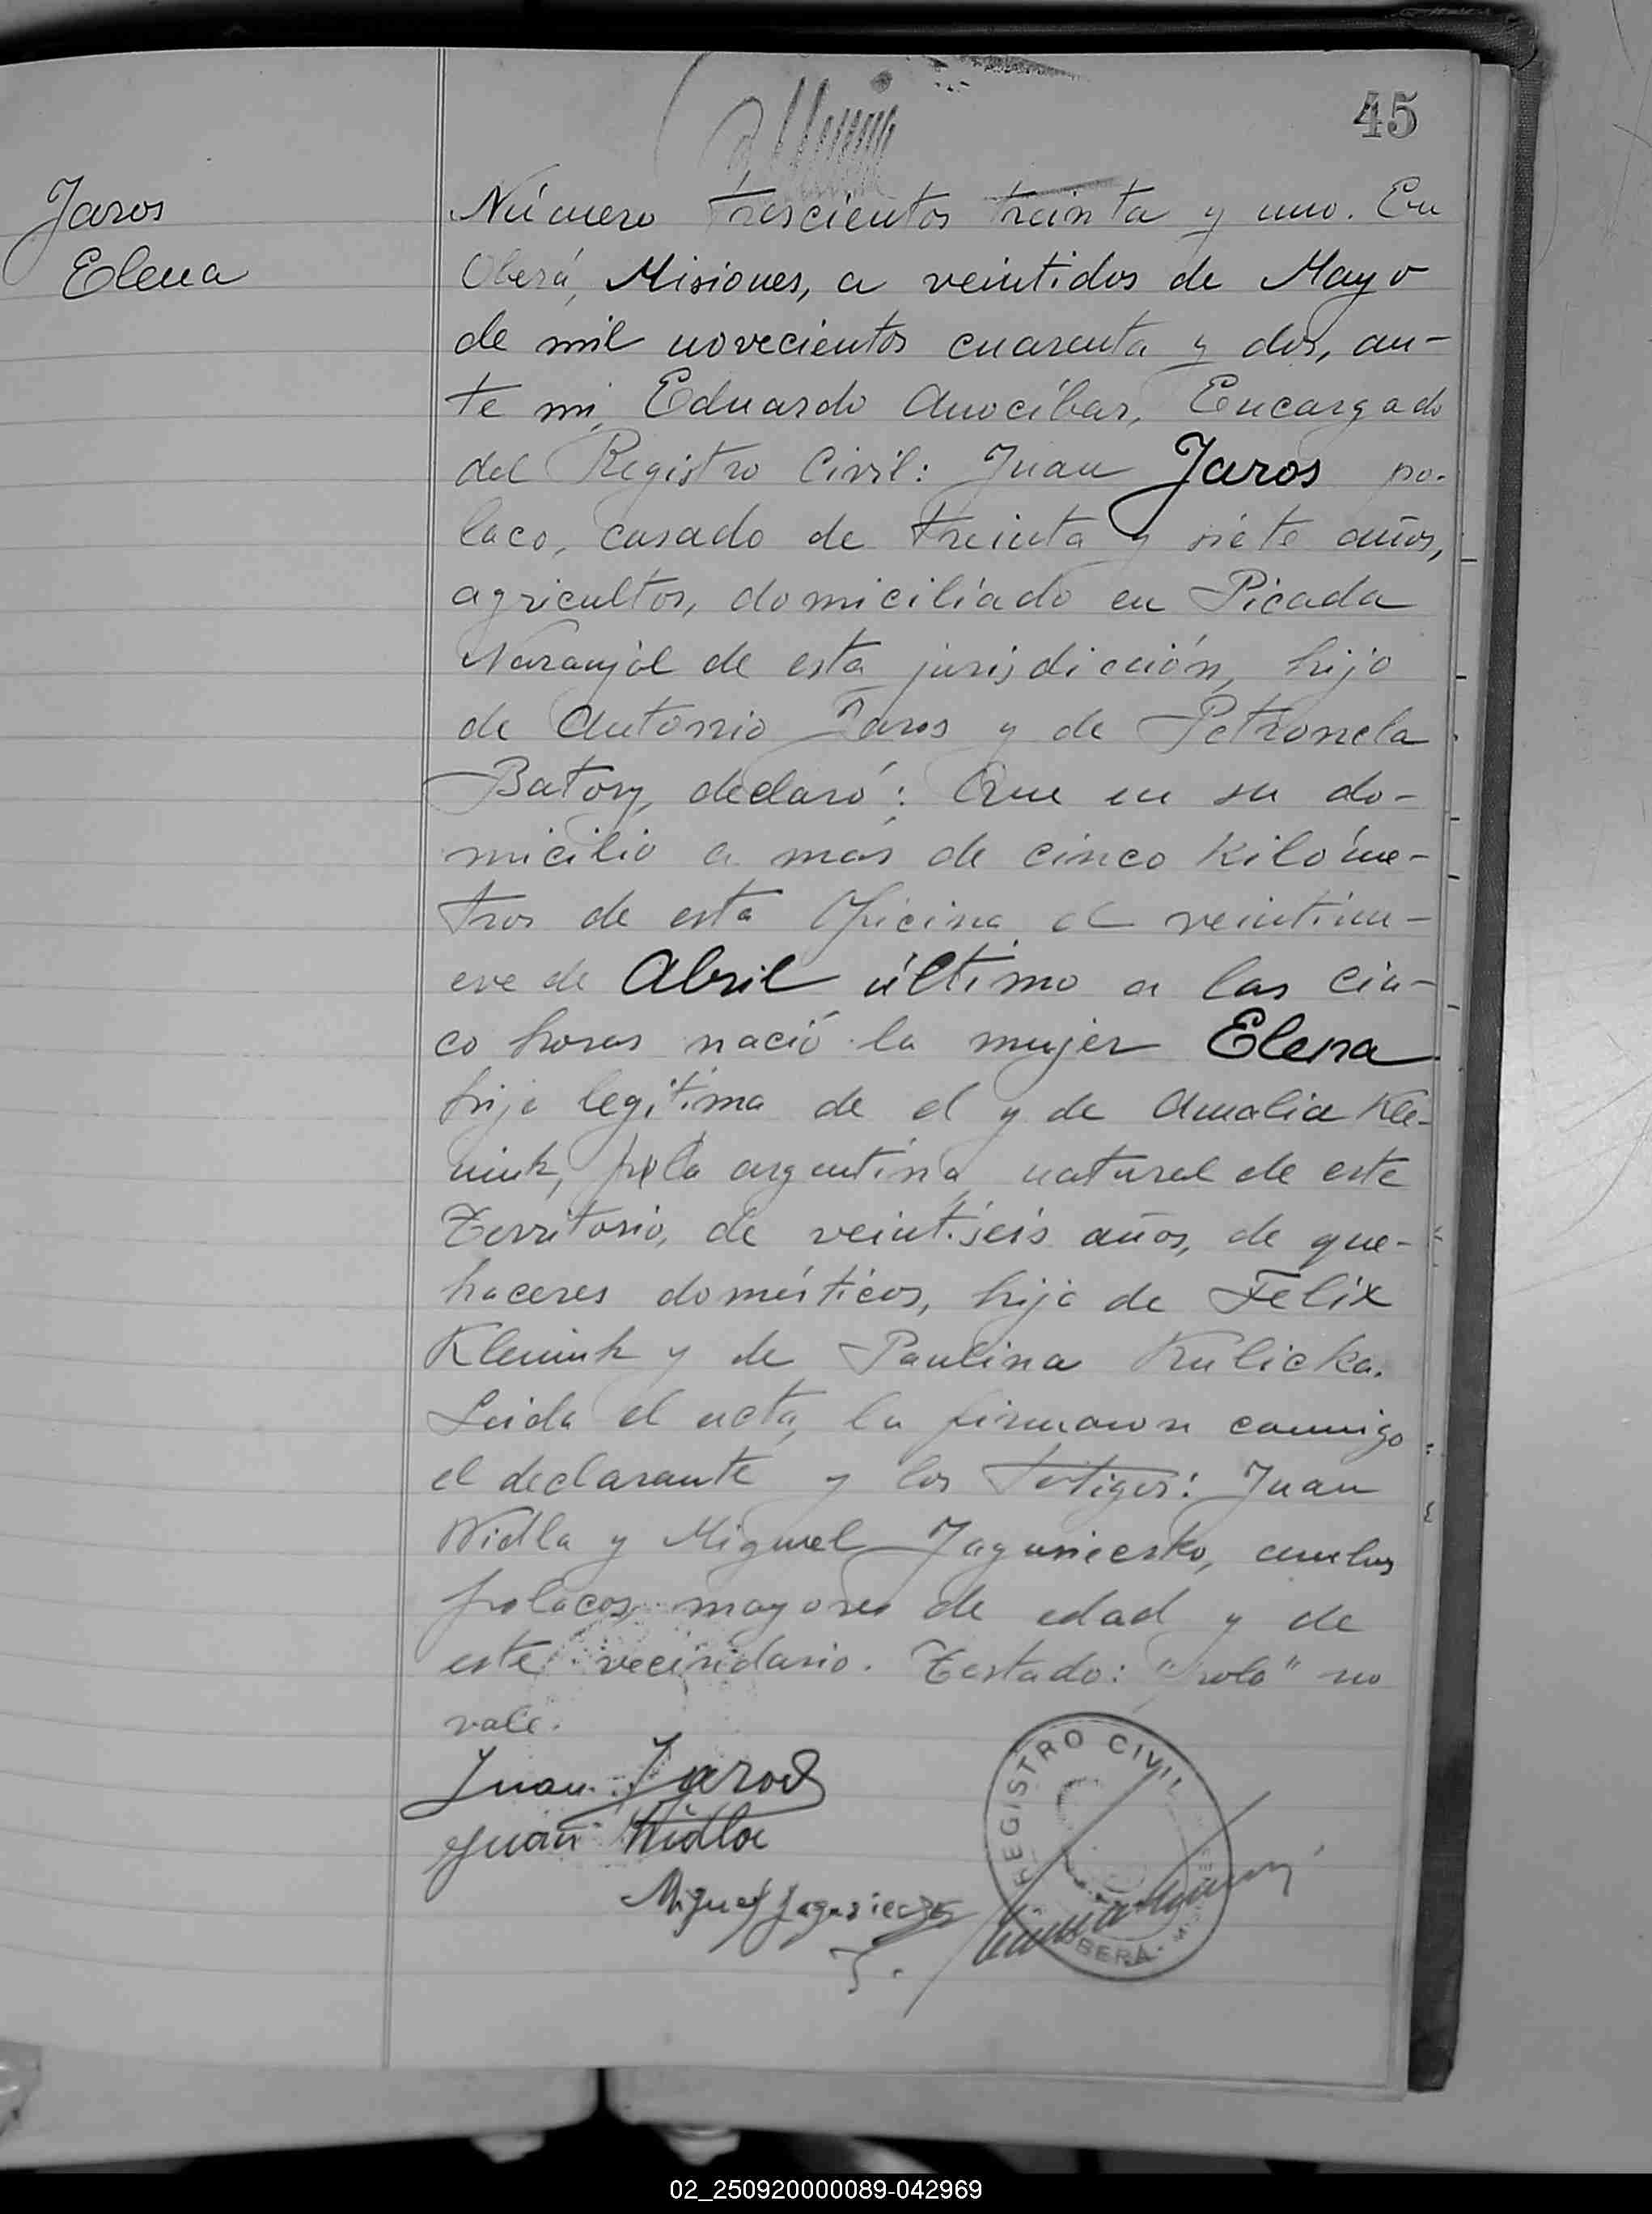 45
Jaros
Elena
Número trescientos treinta y uno. En
Oberá, Misiones, a veintidos de Mayo
de mil novecientos cuarenta y dos, an-
te mi, Eduardo Anocíbar, Encargado
del Registro Civil: Juan Jaros po-
laco, casado de treinta y siete años,
agricultor, domiciliado en Picada
Naranjal de esta jurisdicción, hijo
de Antonio Jaros y de Petronela
Batory, declaró: Que en su do-
micilio a más de cinco kilóme-
tros de esta Oficina el veintinu-
eve de Abril último a las cin-
co horas nació la mujer Elena
hija legítima de el y de Amalia Kle-
niuk, pola argentina natural de este
Territorio, de veintiseis años, de que-
haceres domésticos, hija de Felix
Kleniuk y de Paulina Kulicka.
Leida el acta, la firmaron conmigo
el declarante y los testigos: Juan
Widla y Miguel, ambos
polacos, mayores de edad y de
este vecindario. Testado: "pola" no
vale.
Juan Jaros
Juan Widla
Miguel
REGISTRO CIVIL
OBERÁ
02_250920000089-042969